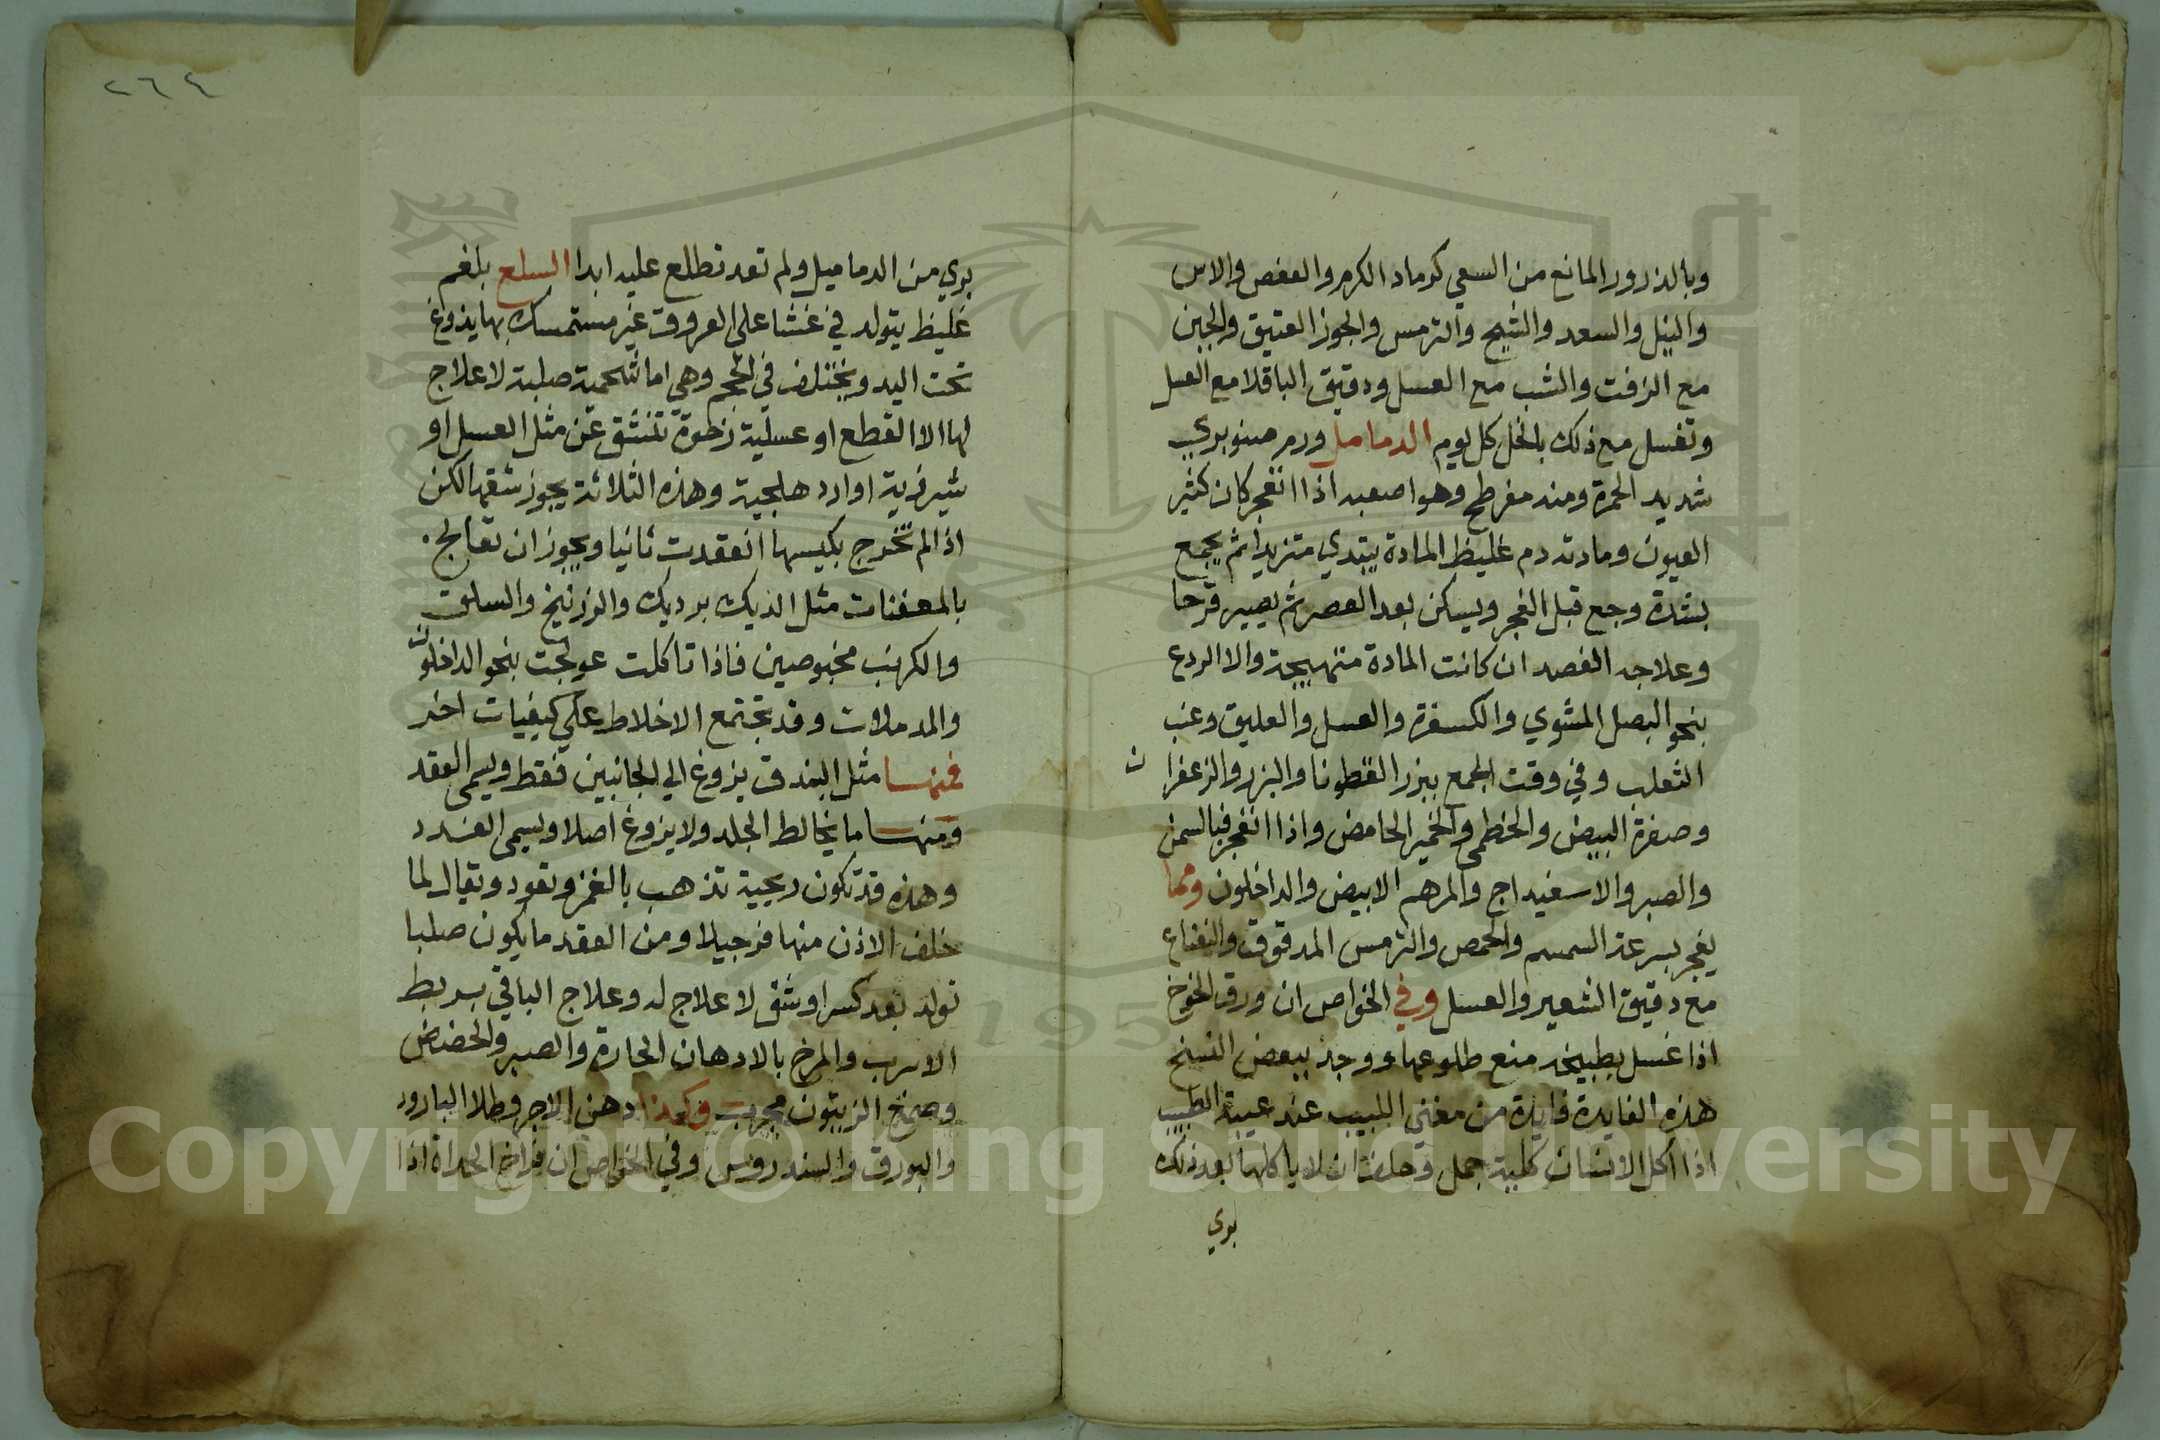 وبالذرور المانع من السعي كرماد الكرم والعفص والاس
والنيل والسعد والشيح والترمس والجوز العتيق والجبن
مع الزفت والشب مع العسل ودقيق الباقلا مع العسل
وتغسل مع ذلك بالخل كل يوم الدماميل ورم صنوبري
شديد الحمرة ومنه مفرطح وهو اصعبه اذا انفجر كان كثير
العيون ومادته دم غليظ المادة يبتدي متزيدا ثم يجمع
بشدة وجع قبل الفجر ويسكن بعد العصر ثم يصير قرحا
وعلاجه الفصد ان كانت المادة متهيجة والا الردع
بنحو البصل المشوي والكسفرة والعسل والعليق وعنب
الثعلب وفي وقت الجمع ببزر القطونا والبزر والزعفران
وصفرة البيض والخطمي والخمير الحامض واذا انفجر فبالسمن
والصبر والاسفيداج والمرهم الابيض والداخلون ومما
يفجر بسرعة السمسم والحمص والترمس المدقوق والنعناع
مع دقيق الشعير والعسل وفي الخواص ان ورق الخوخ
اذا غسل بطبيخه منع طلوعها ووجد ببعض النسخ
هذه الفايدة فايدة من مغني اللبيب عند غيبة الطبيب
اذا اكل الانسان كلية جمل وحلف ان لا ياكلها بعد ذلك
بري
٢٦٤
بري من الدماميل ولم تعد تطلع عليه ابدا السلع بلغم
غليظ يتولد في غشا على العروق غير مستمسك بها يزوغ
تحت اليد ويختلف في الحجم وهي اما شحمية صلبة لا علاج
لها الا القطع او عسلية رخوة تنشق عن مثل العسل او
شيرزية او اردهلجية وهذه الثلاثة يجوز شقها لكن
اذا لم تخرج بكيسها انعقدت ثانيا ويجوز ان تعالج
بالمعفنات مثل الديك برديك والزرنيخ والسلق
والكرنب مخبوصين فاذا تاكلت عولجت بنحو الداخلون
والمدملات وقد تجتمع الاخلاط على كيفيات اخر
فمنها مثل البندق يزوغ الي الجانبين فقط ويسمى العقد
ومنها ما يخالط الجلد ولا يزوغ اصلا ويسمى الغدد
وهذه قد تكون ريحية تذهب بالغمز وتعود ويقال لما
خلف الاذن منها فوجيلا ومن العقد ما يكون صلبا
تولد بعد كسر او شق لا علاج له وعلاج الباقي بربط
الاسرب والمرخ بالادهان الحارة والصبر والحضض
وصمغ الزيتون مجرب وكذا دهن الاجر وطلا البارود
والبورق والسندروس وفي الخواص ان فراخ الحداة اذا
Copyright © King Saud University